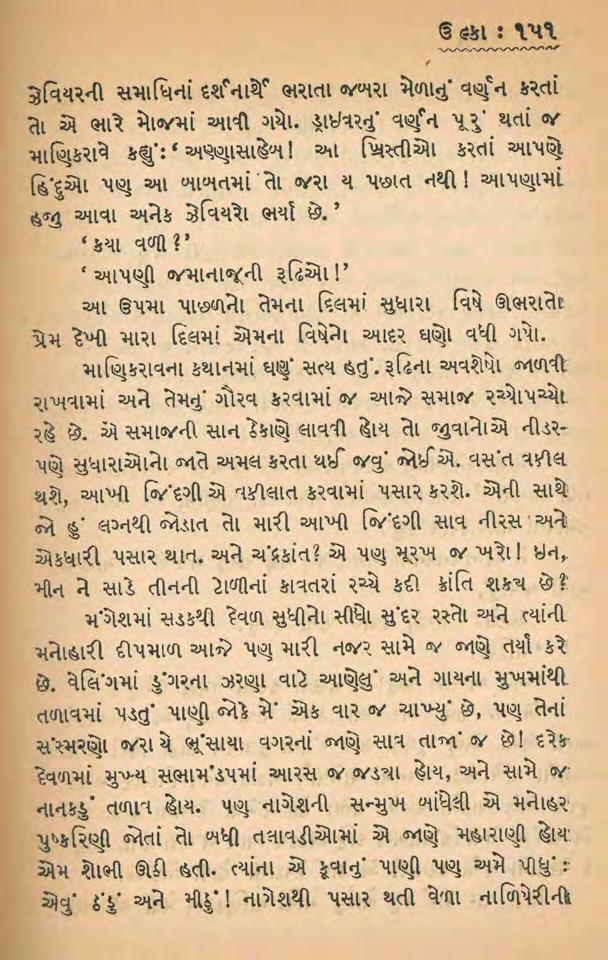 ઉલ્કા : ૧૫૧
ઝેવિયરની સમાધિનાં દર્શનાર્થે ભરાતા જબરા મેળાનું વર્ણન કરતાં
તો એ ભારે મોજમાં આવી ગયો. ડ્રાઇવરનું વર્ણન પૂરું થતાં જ
માણિકરાવે કહ્યું : ‘ અણ્ણાસાહેબ! આ ખ્રિસ્તીઓ કરતાં આપણે
હિંદુઓ પણ આ બાબતમાં તો જરા ય પછાત નથી! આપણામાં
હજુ આવા અનેક ઝેવિયરો ભર્યા છે. ’
‘ કયા વળી ?’
‘ આપણી જમાનાજૂની રૂઢિઓ!’
આ ઉપમા પાછળનો તેમના દિલમાં સુધારા વિષે ઊભરાતો
પ્રેમ દેખી મારા દિલમાં એમના વિષેનો આદર ઘણો વધી ગયો.
માણિકરાવના કથાનમાં ઘણું સત્ય હતું. રૂઢિના અવશેષો જાળવી
રાખવામાં અને તેમનું ગૌરવ કરવામાં જ આજે સમાજ રચ્યોપચ્યો
રહે છે. એ સમાજની સાન ઠેકાણે લાવવી હોય તો જુવાનોએ નીડર-
પણે સુધારાઓનો જાતે અમલ કરતા થઈ જવું જોઈએ. વસંત વકીલ
થશે, આખી જિંદગી એ વકીલાત કરવામાં પસાર કરશે. એની સાથે
જો હું લગ્નથી જોડાત તો મારી આખી જિંદગી સાવ નીરસ અને
એકધારી પસાર થાત. અને ચંદ્રકાંત? એ પણ મૂરખ જ ખરો! ઇન,
મીન ને સાડે તીનની ટોળીનાં કાવતરાં રચ્યે કદી ક્રાંતિ શક્ય છે?
મંગેશમાં સડકથી દેવળ સુધીનો સીધો સુંદર રસ્તો અને ત્યાંની
મનોહારી દીપમાળ આજે પણ મારી નજર સામે જ જાણે તર્યા કરે
છે. વેલિંગમાં ડુંગરના ઝરણા વાટે આણેલું અને ગાયના મુખમાંથી
તળાવમાં પડતું પાણી જોકે મેં એક વાર જ ચાખ્યું છે, પણ તેનાં
સંસ્મરણો જરા યે ભૂંસાયા વગરનાં જાણે સાવ તાજાં જ છે! દરેક
દેવળમાં મુખ્ય સભામંડપમાં આરસ જ જડ્યા હોય, અને સામે જ
નાનકડું તળાવ હોય. પણ નાગેશની સન્મુખ બાંધેલી એ મનોહર
પુષ્કરિણી જોતાં તો બધી તલાવડીઓમાં એ જાણે મહારાણી હોય
એમ શોભી ઊઠી હતી. ત્યાંના એ કૂવાનું પાણી પણ અમે પીધું :
એવું ઠંડું અને મીઠું! નાગેશથી પસાર થતી વેળા નાળિયેરીની